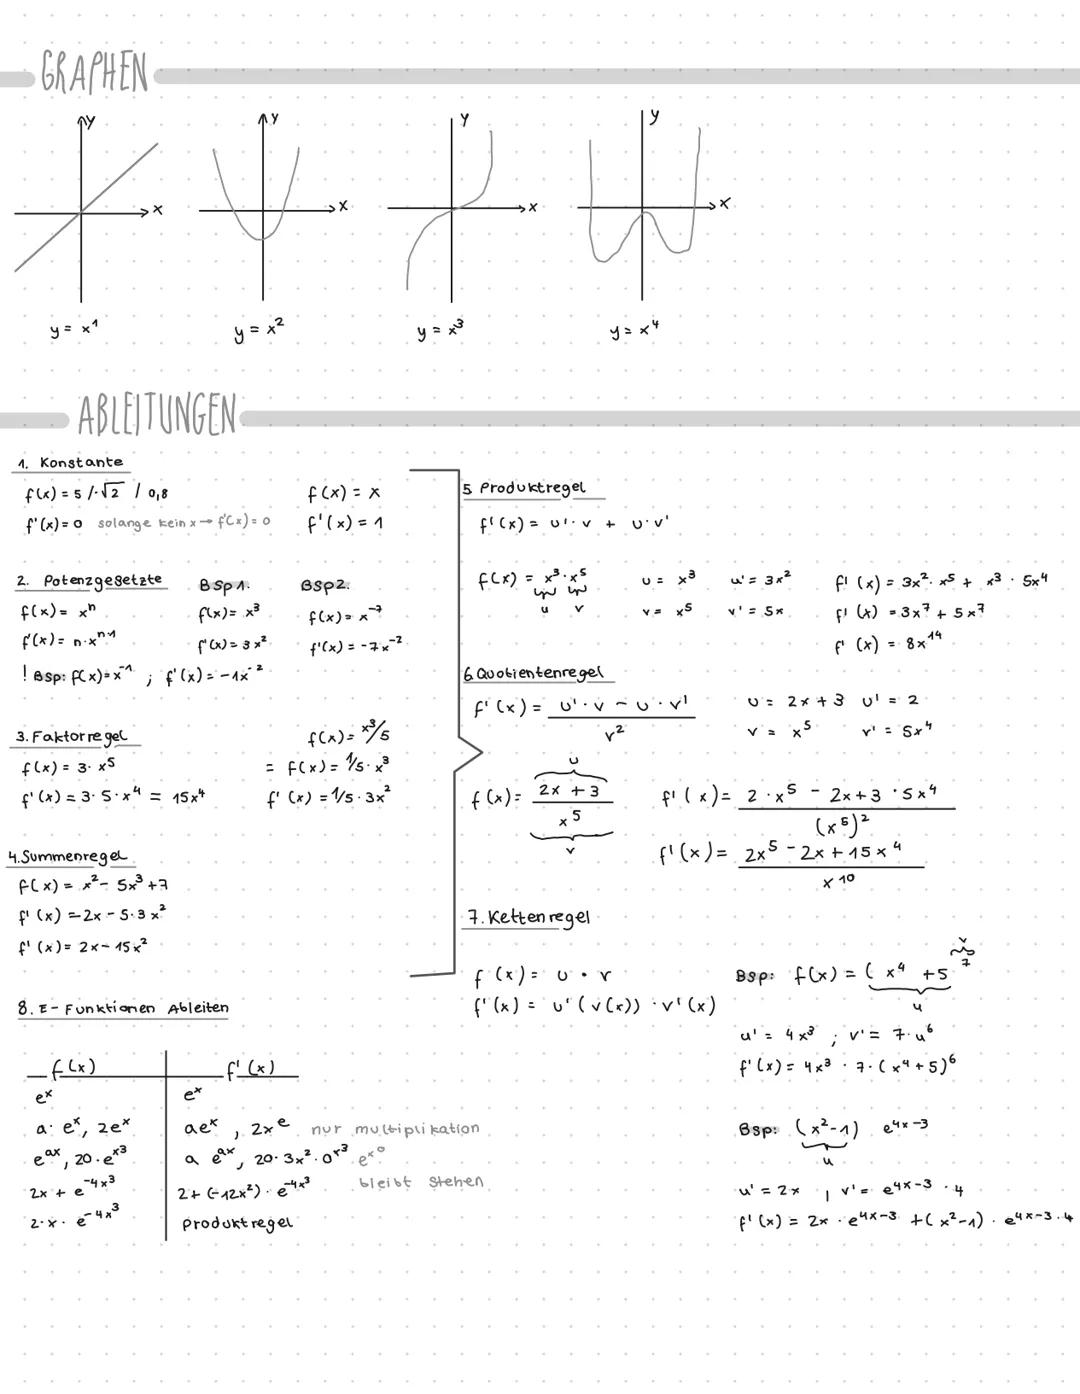 GRAPHEN
y y y y
x x x x
y = x¹ y = x² y = x³ y = x⁴
ABLEITUNGEN
1. Konstante
f(x) = 5 /-√2 / 0,8 f(x) = x
f'(x) = 0 solange kein x → f'(x) = 0 f'(x) = 1
2. Potenzgesetzte BSP1. BSP2.
f(x) = xⁿ f(x) = x³ f(x) = x⁻⁷
f'(x) = n·xⁿ⁻¹ f'(x) = 3x² f'(x) = -7x⁻²
! Bsp: f(x) = x⁻¹ ; f'(x) = -1x⁻²
3. Faktorregel f(x) = x³/5
f(x) = 3·x⁵ = f(x) = 1/5·x³
f'(x) = 3·5·x⁴ = 15x⁴ f'(x) = 1/5·3x²
4. Summenregel
f(x) = x² - 5x³ + 7
f'(x) = 2x - 5·3x²
f'(x) = 2x - 15x²
5 Produktregel
f'(x) = u'·v + u·v'
f(x) = x³·x⁵ u = x³ u' = 3x² f'(x) = 3x²·x⁵ + x³·5x⁴
u v v = x⁵ v' = 5x f'(x) = 3x⁷ + 5x⁷
f'(x) = 8x¹⁴
6. Quotientenregel
f'(x) = u'·v - u·v' u = 2x + 3 u' = 2
v² v = x⁵ v' = 5x⁴
u
f(x) = 2x + 3 f'(x) = 2·x⁵ - 2x+3·5x⁴
x⁵ (x⁵)²
v f'(x) = 2x⁵ - 2x + 15x⁴
x¹⁰
7. Kettenregel
f(x) = u • v Bsp: f(x) = (x⁴ + 5 7 v
f'(x) = u'(v(x))·v'(x) u
u' = 4x³ ; v' = 7·u⁶
f'(x) = 4x³·7·(x⁴+5)⁶
Bsp: (x²-1) e⁴ˣ⁻³
u
u' = 2x , v' = e⁴ˣ⁻³·4
f'(x) = 2x·e⁴ˣ⁻³ + (x²-1)·e⁴ˣ⁻³·4
8. E-Funktionen Ableiten
f(x) f'(x)
eˣ eˣ
a·eˣ, 2eˣ aeˣ, 2xᵉ nur multiplikation
eᵃˣ, 20·eˣ³ a eᵃˣ, 20·3x²·0ˣ³ eˣ⁰
2x + e⁻⁴ˣ³ 2 + (-12x²)·e⁻⁴ˣ³ bleibt stehen
2·x·e⁻⁴ˣ³ Produktregel